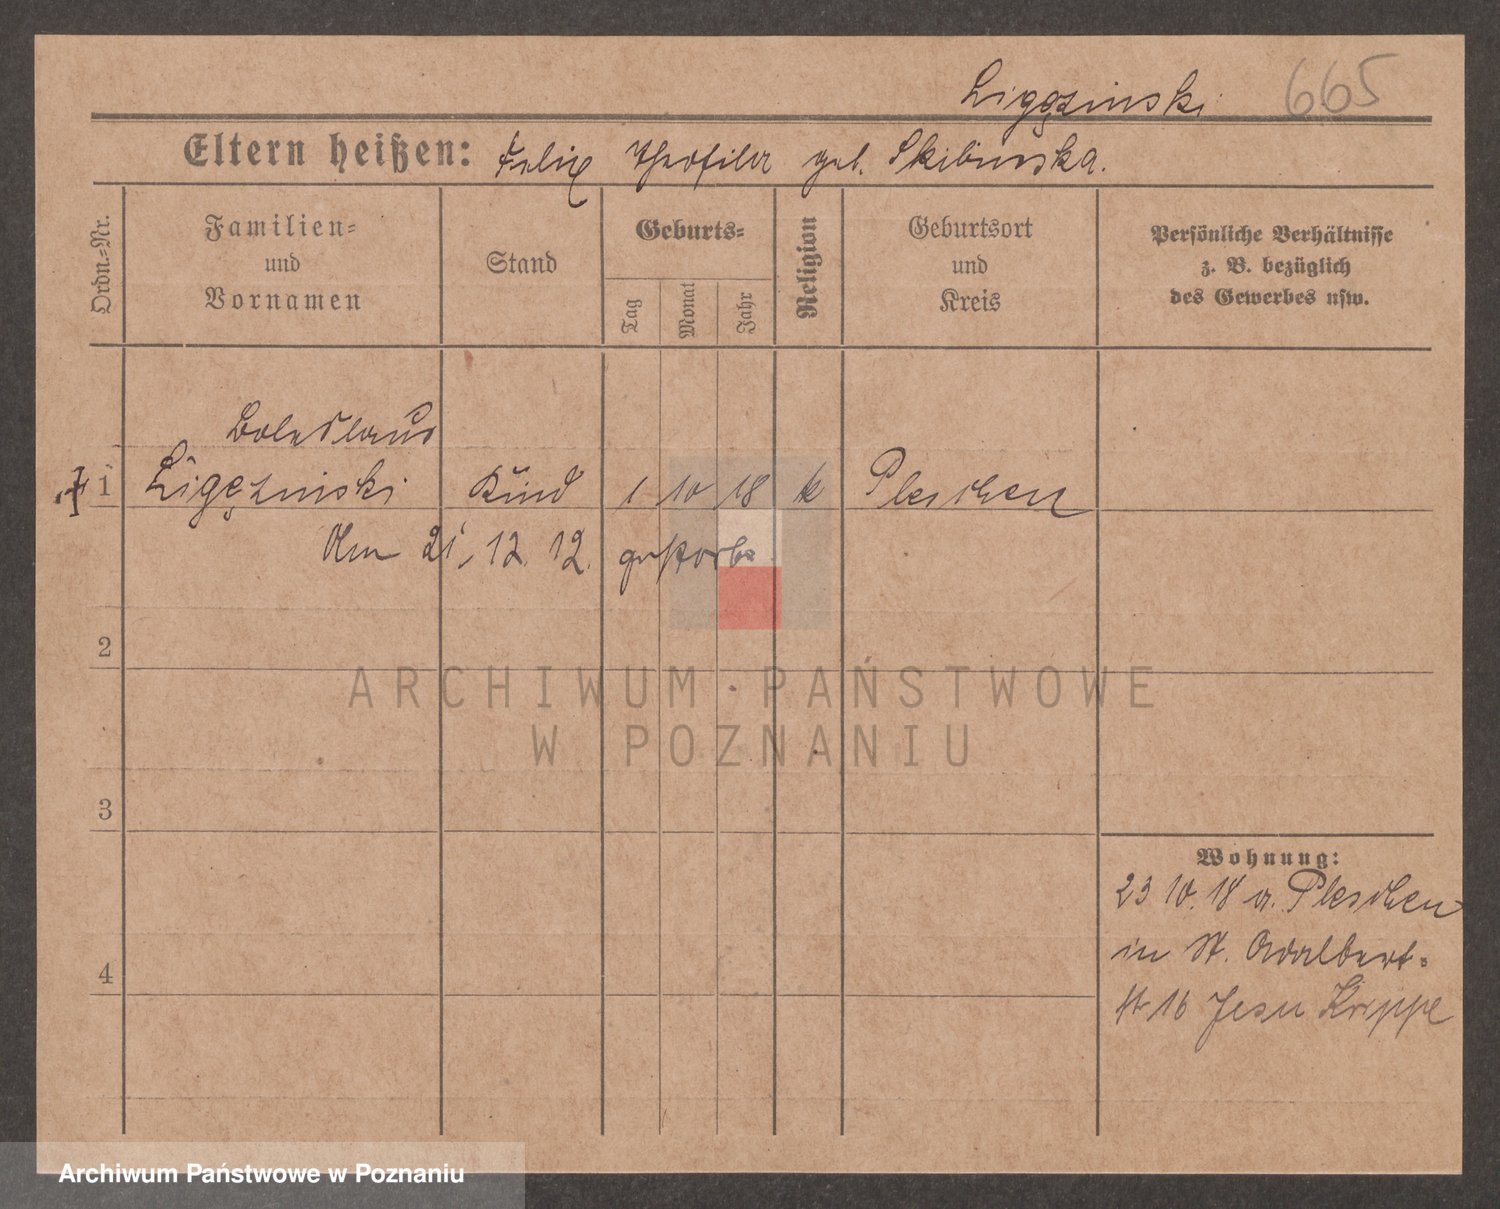 Ligęzinski 665
Eltern heißen: Felix Theofiler geb. Skibinska.
Ordn=Nr.
Familien=
und
Vornamen
Stand
Geburts=
Tag
Monat
Jahr
Religion
Geburtsort
und
Kreis
Persönliche Verhältnisse
z. B. bezüglich
des Gewerbes usw.
Boleslaus
1 Ligęzinski Kind 1 10 18 k Pleschen
Am 21. 12. 12. gestorb.
2
ARCHIWUM PAŃSTWOWE
W POZNANIU
3
Wohnung:
23 10. 18 a. Pleschen
in St. Adalbert=
4
str 16 Jesu Krippe
Archiwum Państwowe w Poznaniu